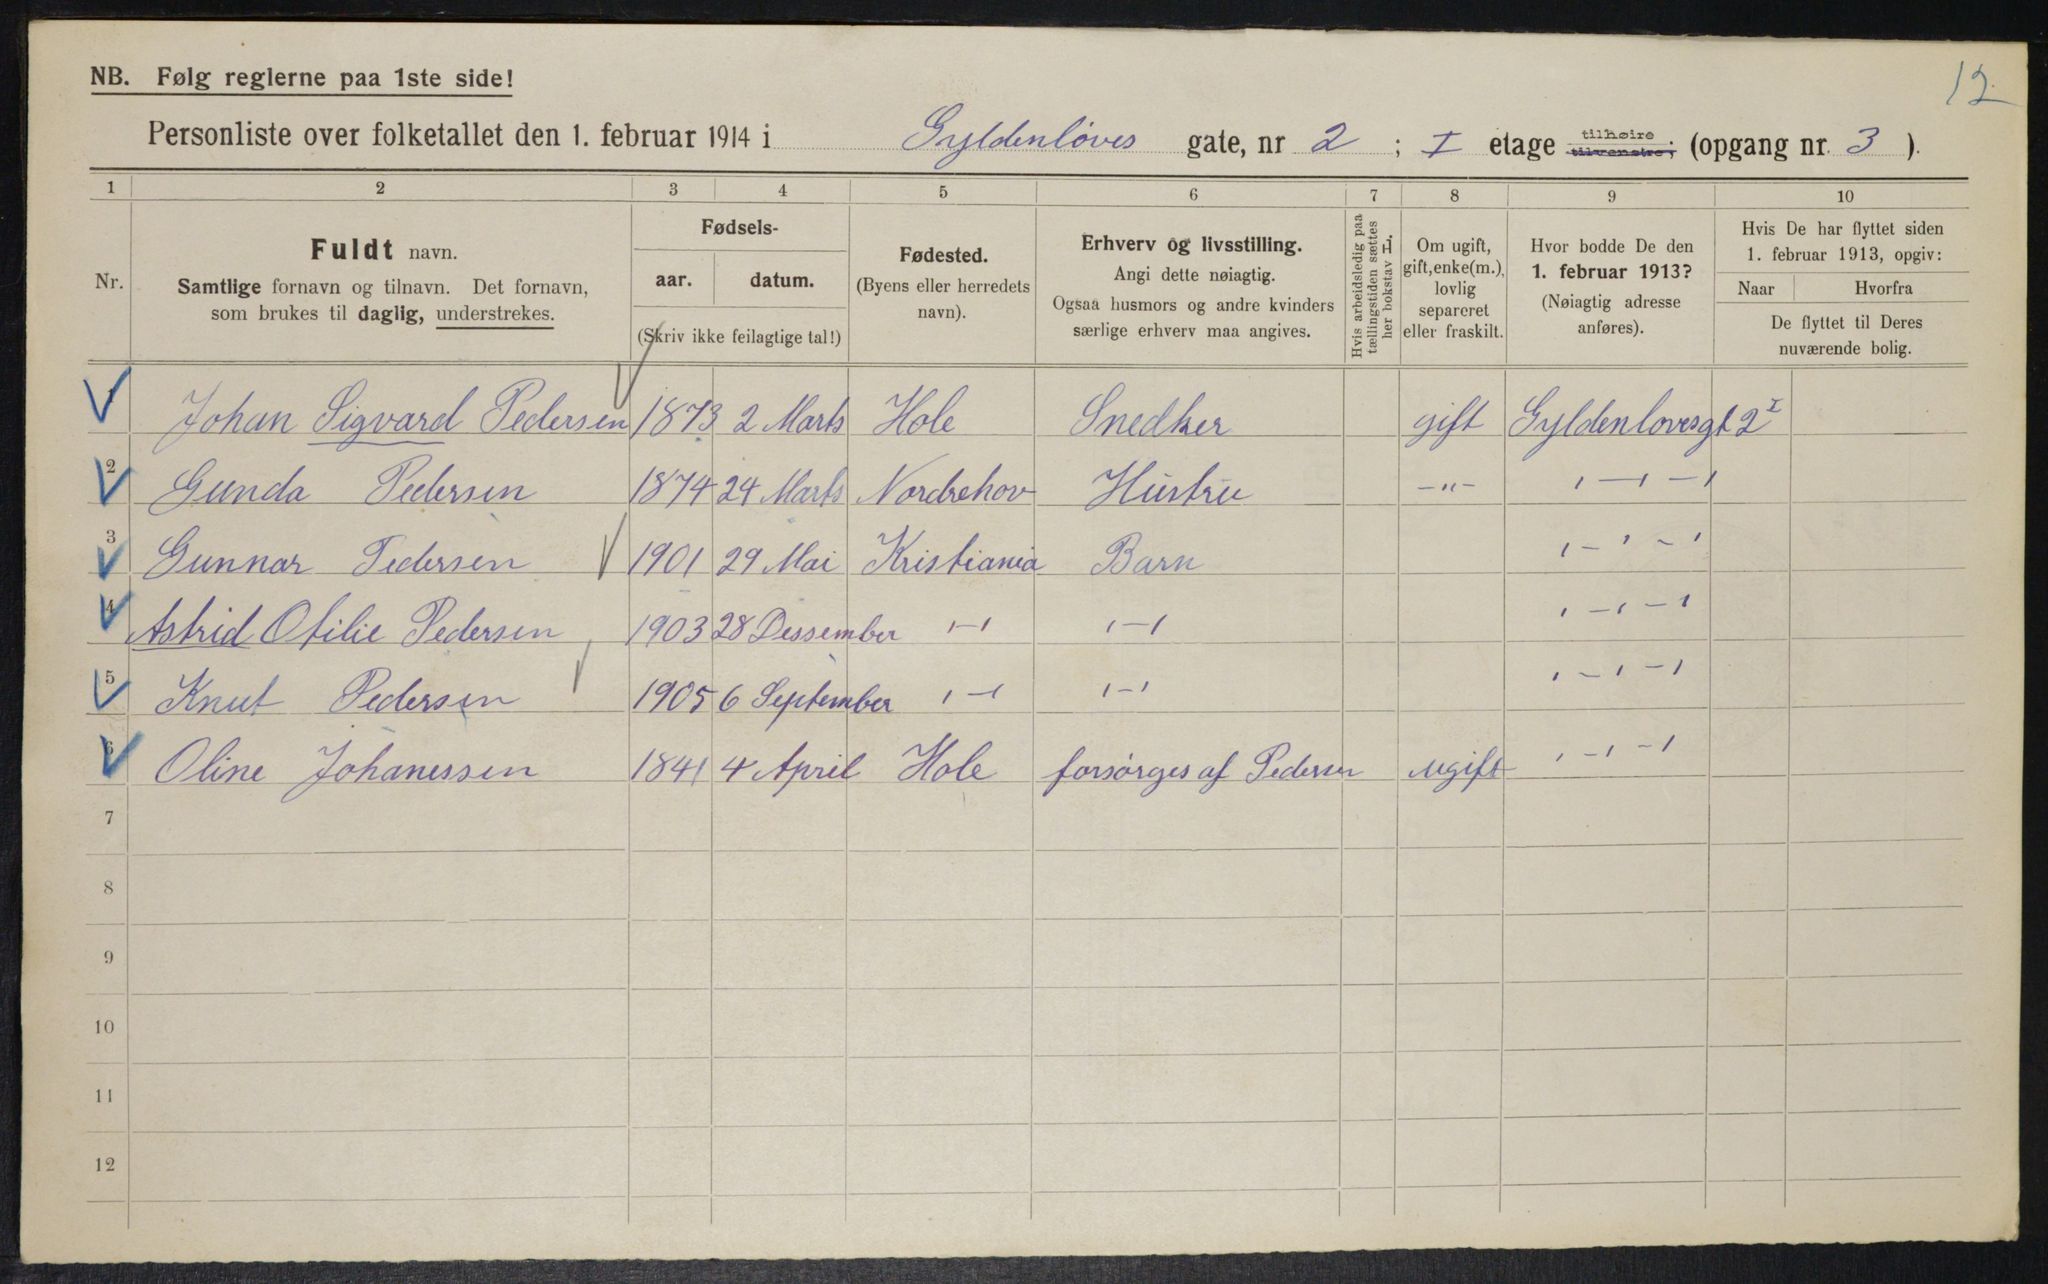 12
NB. Følg reglerne paa 1ste side!
Personliste over folketallet den 1. februar 1914 i Gyldenløves gate, nr 2 ; I etage tilhøire tilvenstre; (opgang nr. 3 ).
1 2 3 4 5 6 7 8 9 10
Nr.
Fuldt navn.
Samtlige fornavn og tilnavn. Det fornavn,
som brukes til daglig, understrekes.
Fødsels-
aar. datum.
(Skriv ikke feilagtige tal!)
Fødested.
(Byens eller herredets
navn).
Erhverv og livsstilling.
Angi dette nøiagtig.
Ogsaa husmors og andre kvinders
særlige erhverv maa angives.
Hvis arbeidsledig paa
tællingstiden sættes
her bokstav L.
Om ugift,
gift, enke(m.),
lovlig
separeret
eller fraskilt.
Hvor bodde De den
1. februar 1913?
(Nøiagtig adresse
anføres).
Hvis De har flyttet siden
1. februar 1913, opgiv:
Naar Hvorfra
De flyttet til Deres
nuværende bolig.
1 Johan Sigvard Pedersen 1873 2 Marts Hole Snedker gift Gyldenlovesgt 2 I
2 Gunda Pedersen 1874 24 Marts Nordrehov Hustru -"- ı — ı — ı
3 Gunnar Pedersen 1901 29 Mai Kristiania Barn ı - ı - ı
4 Astrid Otilie Pedersen 1903 28 Dessember ı-ı ı-ı ı - ı - ı
5 Knut Pedersen 1905 6 September ı-ı ı-ı ı - ı - ı
6 Oline Johanessen 1841 4 April Hole forsørges af Pedersen ugift ı - ı - ı
7
8
9
10
11
12